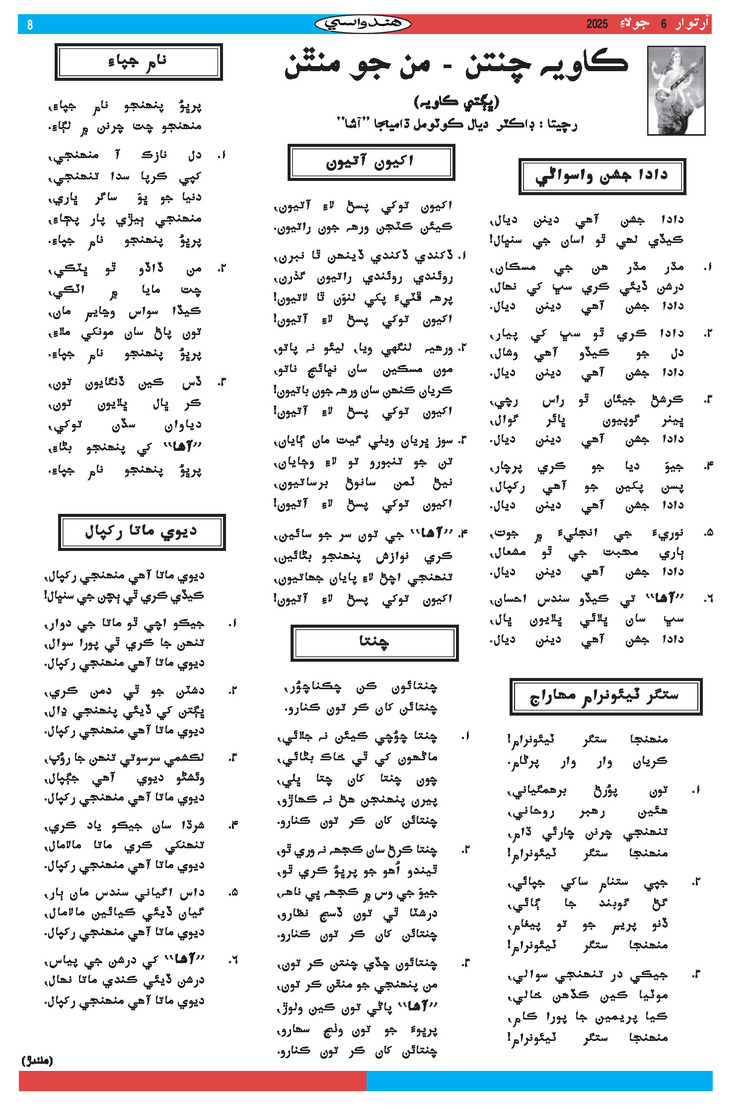 آرتوار 6 جولاءِ 2025
هندواسي
8
ڪاويہ چنتن - من جو منٿن
(ڀڳتي ڪاويہ)
رچيتا : ڊاڪٽر ديال ڪوٽومل ڌاميجا ”آشا“
دادا جشن واسواڻي
دادا جشن آهي دينن ديال،
ڪيڏي لهي ٿو اسان جي سنڀال!
۱. مڌر مڌر هن جي مسڪان،
درشن ڏيئي ڪري سڀ کي نهال،
دادا جشن آهي دينن ديال.
۲. دادا ڪري ٿو سڀ کي پيار،
دل جو ڪيڏو آهي وشال،
دادا جشن آهي دينن ديال.
۳. ڪرشڻ جيئان ٿو راس رچي،
ڀينر گوپيون ڀائر گوال،
دادا جشن آهي دينن ديال.
۴. جيوَ ديا جو ڪري پرچار،
پسن پکين جو آهي رکپال،
دادا جشن آهي دينن ديال.
۵. نوريءَ جي انجليءَ ۾ جوت،
ٻاري محبت جي ٿو مشعال،
دادا جشن آهي دينن ديال.
۶. ”آشا“ تي ڪيڏو سندس احسان،
سڀ سان ڀلائي ڀلايون ڀال،
دادا جشن آهي دينن ديال.
ستگر ٽيئونرام مهاراج
منهنجا ستگر ٽيئونرام!
ڪريان وار وار پرڻام.
۱. تون پوُرڻ برهمگياني،
هئين رهبر روحاني،
تنهنجي چرنن چارئي ڌام،
منهنجا ستگر ٽيئونرام!
۲. جپي ستنام ساکي جپائي،
گڻ گوبند جا ڳائي،
ڏنو پريم جو تو پيغام،
منهنجا ستگر ٽيئونرام!
۳. جيڪي در تنهنجي سوالي،
موٽيا ڪين ڪڏهن خالي،
ڪيا پريمين جا پورا ڪام،
منهنجا ستگر ٽيئونرام!
اکيون آتيون
اکيون توکي پسڻ لاءِ آتيون،
ڪيئن ڪٽجن ورهہ جون راتيون.
۱. ڏکندي ڏکندي ڏينهن ٿا نبرن،
روئندي روئندي راتيون گذرن،
پرهہ ڦٽيءَ پکي لنوَن ٿا لاتيون!
اکيون توکي پسڻ لاءِ آتيون!
۲. ورهيہ لنگهي ويا، ليئو نہ پاتو،
مون مسڪين سان نڀائج ناتو،
ڪريان ڪنهن سان ورهہ جون باتيون!
اکيون توکي پسڻ لاءِ آتيون!
۳. سوز ڀريان ويٺي گيت مان ڳايان،
تن جو تنبورو تو لاءِ وڄايان،
نيڻ ٽمن سانوڻ برساتيون،
اکيون توکي پسڻ لاءِ آتيون!
۴. ”آشا“ جي تون سر جو سائين،
ڪري نوازش پنهنجو بڻائين،
تنهنجي اچڻ لاءِ پايان جهاتيون،
اکيون توکي پسڻ لاءِ آتيون!
چنتا
چنتائون ڪن چڪناچوُر،
چنتائن کان ڪر تون ڪنارو.
۱. چنتا چوُڇي ڪيئن نہ جلائي،
ماڻهون کي ٿي خاڪ بڻائي،
چون چنتا کان چتا ڀلي،
پيرن پنهنجن هڻ نہ ڪهاڙو،
چنتائن کان ڪر تون ڪنارو.
۲. چنتا ڪرڻ سان ڪجهہ نہ وري ٿو،
ٿيندو اُهو جو پرڀوُ ڪري ٿو،
جيوَ جي وس ۾ ڪجهہ ڀي ناهہ،
درشٽا ٿي تون ڏسج نظارو،
چنتائن کان ڪر تون ڪنارو.
۳. چنتائون ڇڏي چنتن ڪر تون،
من پنهنجي جو منٿن ڪر تون،
”آشا“ پاڻي تون ڪين ولوڙ،
پرڀوءَ جو تون وٺج سهارو،
چنتائن کان ڪر تون ڪنارو.
نام جپاءِ
پرڀوُ پنهنجو نام جپاءِ،
منهنجو چت چرنن ۾ لڳاءِ.
۱. دل نازڪ آ منهنجي،
کپي ڪرپا سدا تنهنجي،
دنيا جو ڀوَ ساگر ڀاري،
منهنجي ٻيڙي پار پڄاءِ،
پرڀوُ پنهنجو نام جپاءِ.
۲. من ڏاڏو ٿو ڀٽڪي،
چت مايا ۾ اٽڪي،
ڪيڏا سواس وڃايم مان،
تون پاڻ سان مونکي ملاءِ،
پرڀوُ پنهنجو نام جپاءِ.
۳. ڏس ڪين ڏنگايون تون،
ڪر ڀال ڀلايون تون،
دياوان سڏن توکي،
”آشا“ کي پنهنجو بڻاءِ،
پرڀوُ پنهنجو نام جپاءِ.
ديوي ماتا رکپال
ديوي ماتا آهي منهنجي رکپال،
ڪيڏي ڪري ٿي ٻچن جي سنڀال!
۱. جيڪو اچي ٿو ماتا جي دوار،
تنهن جا ڪري ٿي پورا سوال،
ديوي ماتا آهي منهنجي رکپال.
۲. دشٽن جو ٿي دمن ڪري،
ڀڳتن کي ڏيئي پنهنجي ڍال،
ديوي ماتا آهي منهنجي رکپال.
۳. لڪشمي سرسوتي تنهن جا روُپ،
وئشڻو ديوي آهي جڳپال،
ديوي ماتا آهي منهنجي رکپال.
۴. شرڌا سان جيڪو ياد ڪري،
تنهنکي ڪري ماتا مالامال،
ديوي ماتا آهي منهنجي رکپال.
۵. داس اگياني سندس مان ٻار،
گيان ڏيئي ڪيائين مالامال،
ديوي ماتا آهي منهنجي رکپال.
۶. ”آشا“ کي درشن جي پياس،
درشن ڏيئي ڪندي ماتا نهال،
ديوي ماتا آهي منهنجي رکپال.
(هلندڙ)